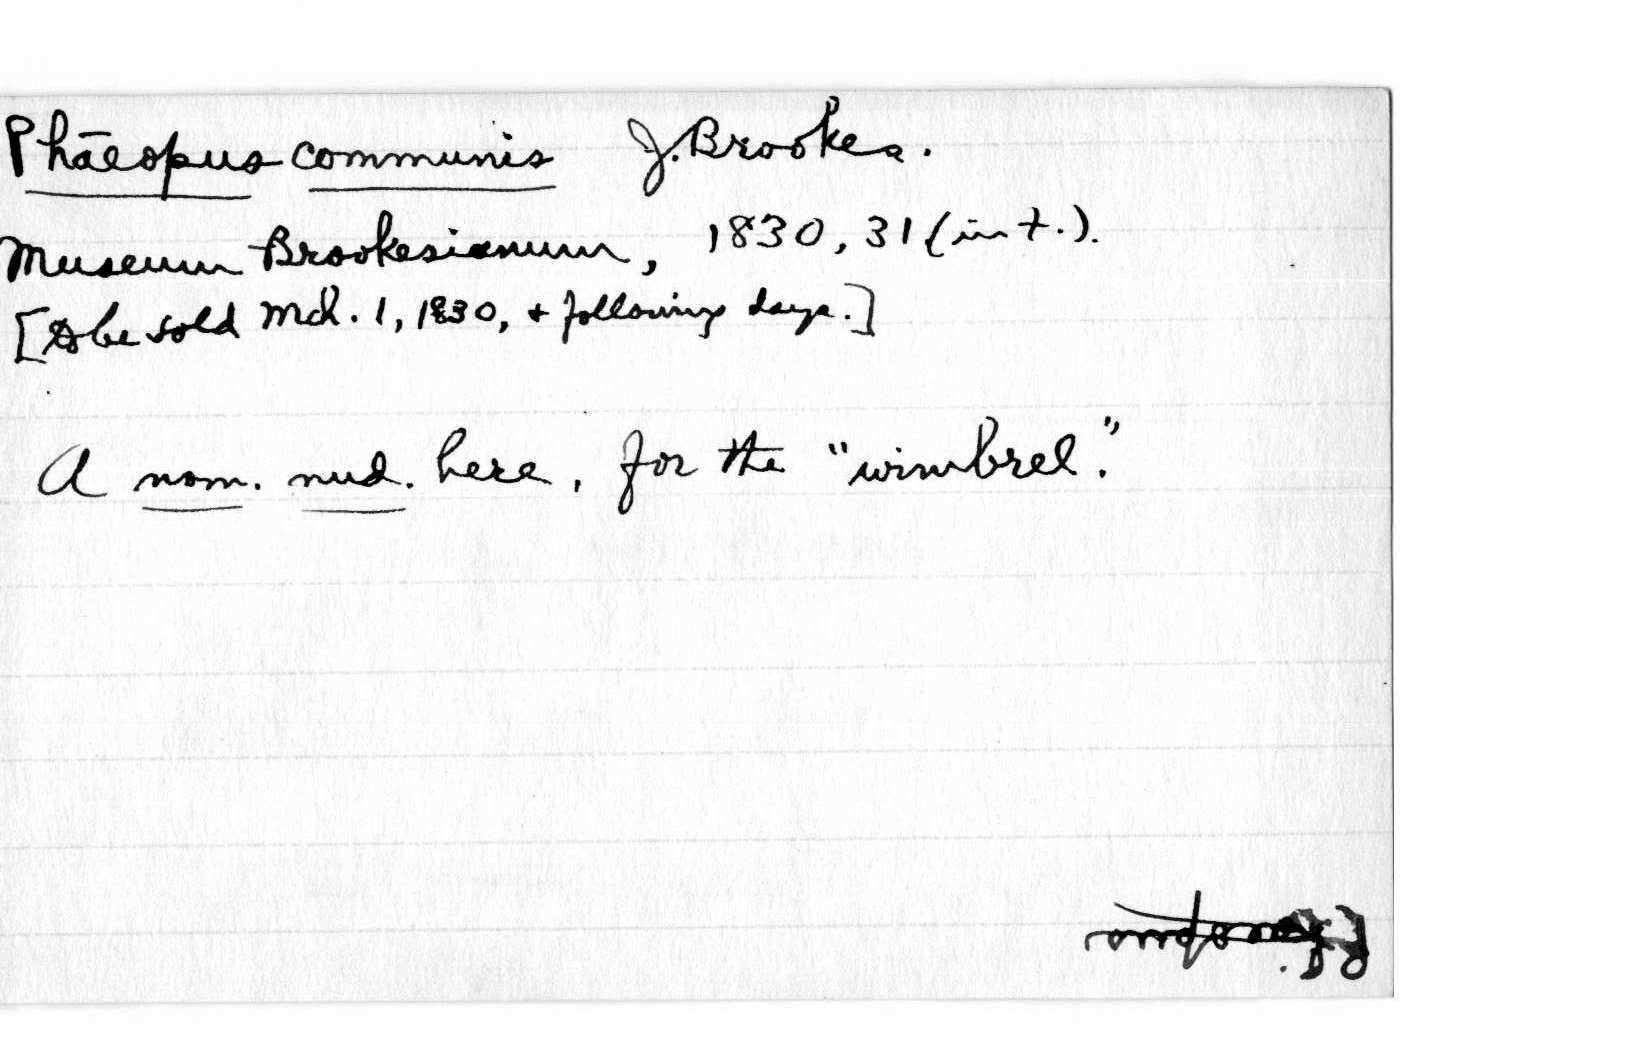 Phāeopus communis J. Brookes.
Museum Brookesianum, 1830, 31 (int.).
[To be sold Mch. 1, 1830, + following days.]
A nom. nud. here, for the "wimbrel."